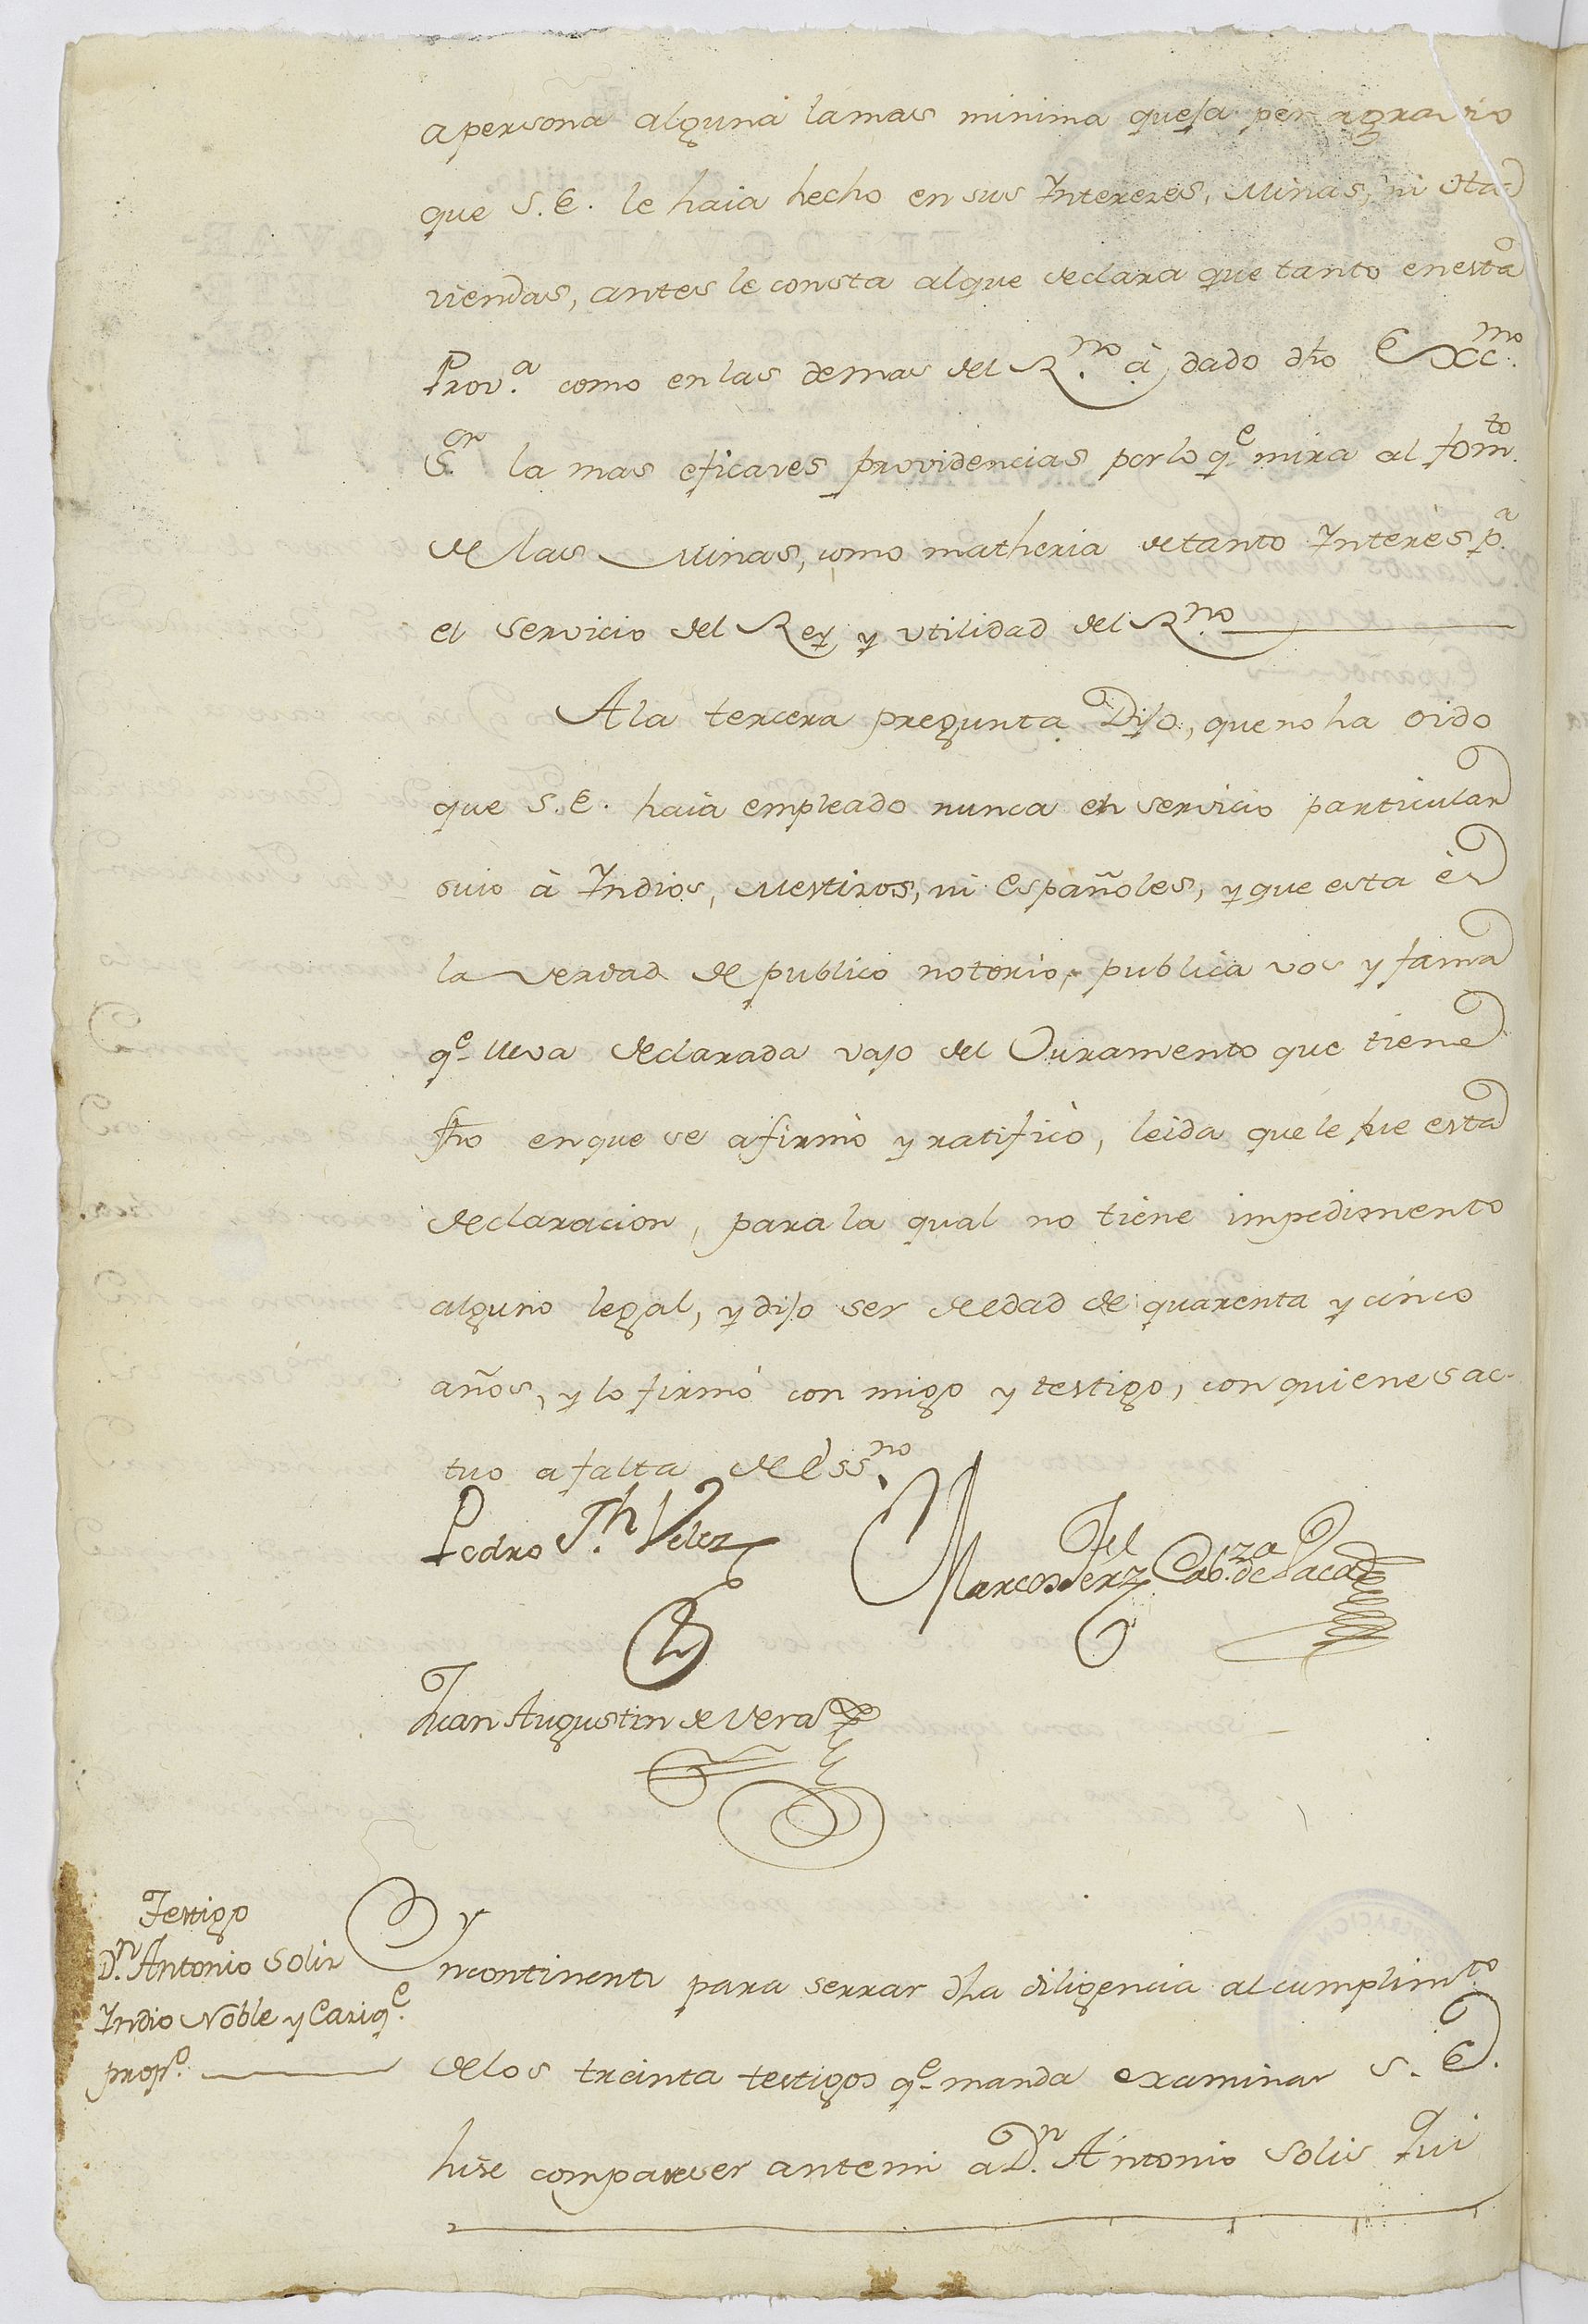 a persona alguna la mas minima quexa por agravio
que S.E. le haia hecho en sus Intereses, Minas, ni Ha
ziendas, antes le consta alque declara que tanto en esta
Prov.ª como en las demas del R.no à dado dho Exc.mo
S.or la mas eficazes providencias por lo q.e mira al fom.to
de las Minas, como matheria de tanto Interès p.ª
el servicio del Rey, y utilidad del R.no
A la tercera pregunta Dijo, que no ha oido
que S.E. haia empleado nunca en servicio particular
suio à Indios, Mestizos, ni Españoles, y que esta es
la verdad de publico notorio, publica vos y fama
q.e lleva declarada vajo del Juramento que tiene
fho en que se afirmò y ratificò, leida que le fue esta
declaracion, para la qual no tiene impedimento
alguno legal, y dijo ser de edad de quarenta y cinco
años, y lo firmò con migo y testigo, con quienes ac-
tuo a falta de Ess.no
Pedro Th. Velez
Marcos Fel Perz Cab.za de Vaca
Juan Augustin de Vera
Testigo
D.n Antonio Solis
Indio Noble y Caziq.e
prop.o
Yncontinenti para serrar dha diligencia al cumplim.to
de los treinta testigos q.e manda examinar S.E.
hise compareser ante mi a D.n Antonio Solis Qui